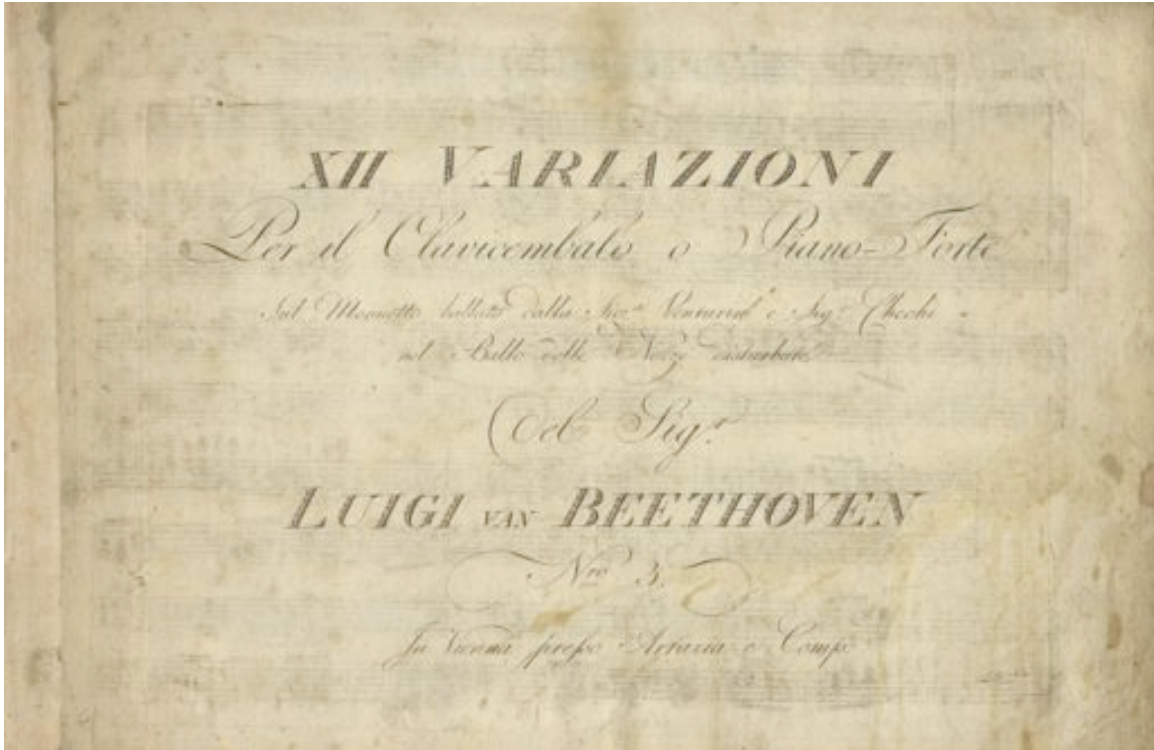 XII VARIAZIONI
Per il Clavicembalo o Piano-Forte
Sul Menuetto ballato dalla Sigra. Venturini e Sigr. Chechi
nel Ballo delle Nozze disturbate
Del Sigr.
LUIGI VAN BEETHOVEN
Nro 3.
In Vienna presso Artaria e Comp.